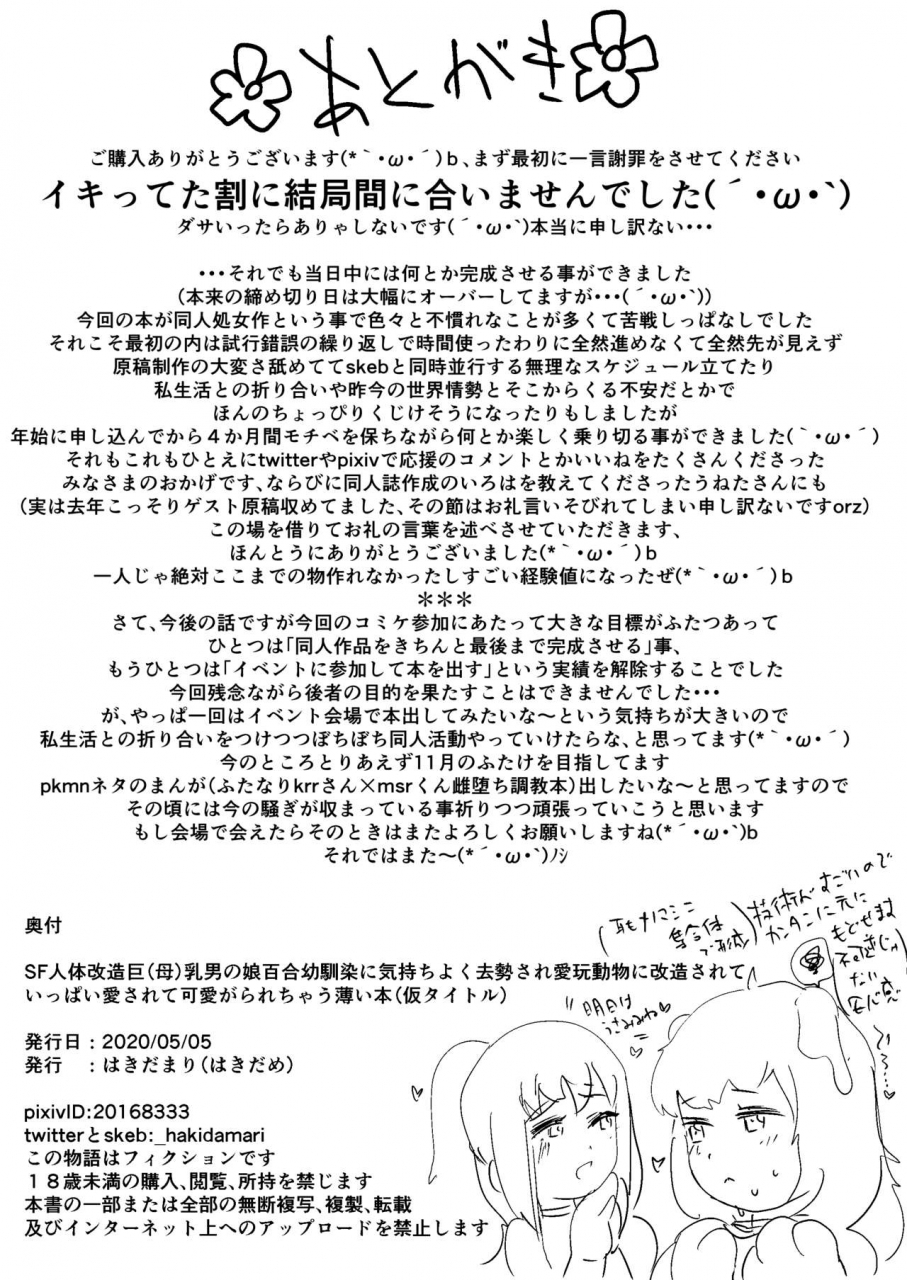 あとがき
ご購入ありがとうございます(*｀・ω・´)ｂ、まず最初に一言謝罪をさせてください
イキってた割に結局間に合いませんでした(´・ω・`)
ダサいったらありゃしないです(´・ω・`)本当に申し訳ない・・・
・・・それでも当日中には何とか完成させる事ができました
(本来の締め切り日は大幅にオーバーしてますが・・・(´・ω・`))
今回の本が同人処女作という事で色々と不慣れなことが多くて苦戦しっぱなしでした
それこそ最初の内は試行錯誤の繰り返しで時間使ったわりに全然進めなくて全然先が見えず
原稿制作の大変さ舐めててskebと同時並行する無理なスケジュール立てたり
私生活との折り合いや昨今の世界情勢とそこからくる不安だとかで
ほんのちょっぴりくじけそうになったりもしましたが
年始に申し込んでから４か月間モチベを保ちながら何とか楽しく乗り切る事ができました(｀・ω・´)
それもこれもひとえにtwitterやpixivで応援のコメントとかいいねをたくさんくださった
みなさまのおかげです、ならびに同人誌作成のいろはを教えてくださったうねたさんにも
(実は去年こっそりゲスト原稿収めてました、その節はお礼言いそびれてしまい申し訳ないですorz)
この場を借りてお礼の言葉を述べさせていただきます、
ほんとうにありがとうございました(*｀・ω・´)ｂ
一人じゃ絶対ここまでの物作れなかったしすごい経験値になったぜ(*｀・ω・´)ｂ
＊＊＊
さて、今後の話ですが今回のコミケ参加にあたって大きな目標がふたつあって
ひとつは「同人作品をきちんと最後まで完成させる」事、
もうひとつは「イベントに参加して本を出す」という実績を解除することでした
今回残念ながら後者の目的を果たすことはできませんでした・・・
が、やっぱ一回はイベント会場で本出してみたいな～という気持ちが大きいので
私生活との折り合いをつけつつぼちぼち同人活動やっていけたらな、と思ってます(*｀・ω・´)
今のところとりあえず11月のふたけを目指してます
pkmnネタのまんが(ふたなりkrrさん×msrくん雌堕ち調教本)出したいな～と思ってますので
その頃には今の騒ぎが収まっている事祈りつつ頑張っていこうと思います
もし会場で会えたらそのときはまたよろしくお願いしますね(*´・ω・`)b
それではまた～(*´・ω・`)ﾉｼ
奥付
SF人体改造巨(母)乳男の娘百合幼馴染に気持ちよく去勢され愛玩動物に改造されて
いっぱい愛されて可愛がられちゃう薄い本(仮タイトル)
発行日：2020/05/05
発行　：はきだまり(はきだめ)
pixivID:20168333
twitterとskeb:_hakidamari
この物語はフィクションです
１８歳未満の購入、閲覧、所持を禁じます
本書の一部または全部の無断複写、複製、転載
及びインターネット上へのアップロードを禁止します
耳もナノマシン
集合体
技術がすごいので
カンタンに元に
もどせます
不可逆じゃ
ない
安心感
明日は
うさみみね